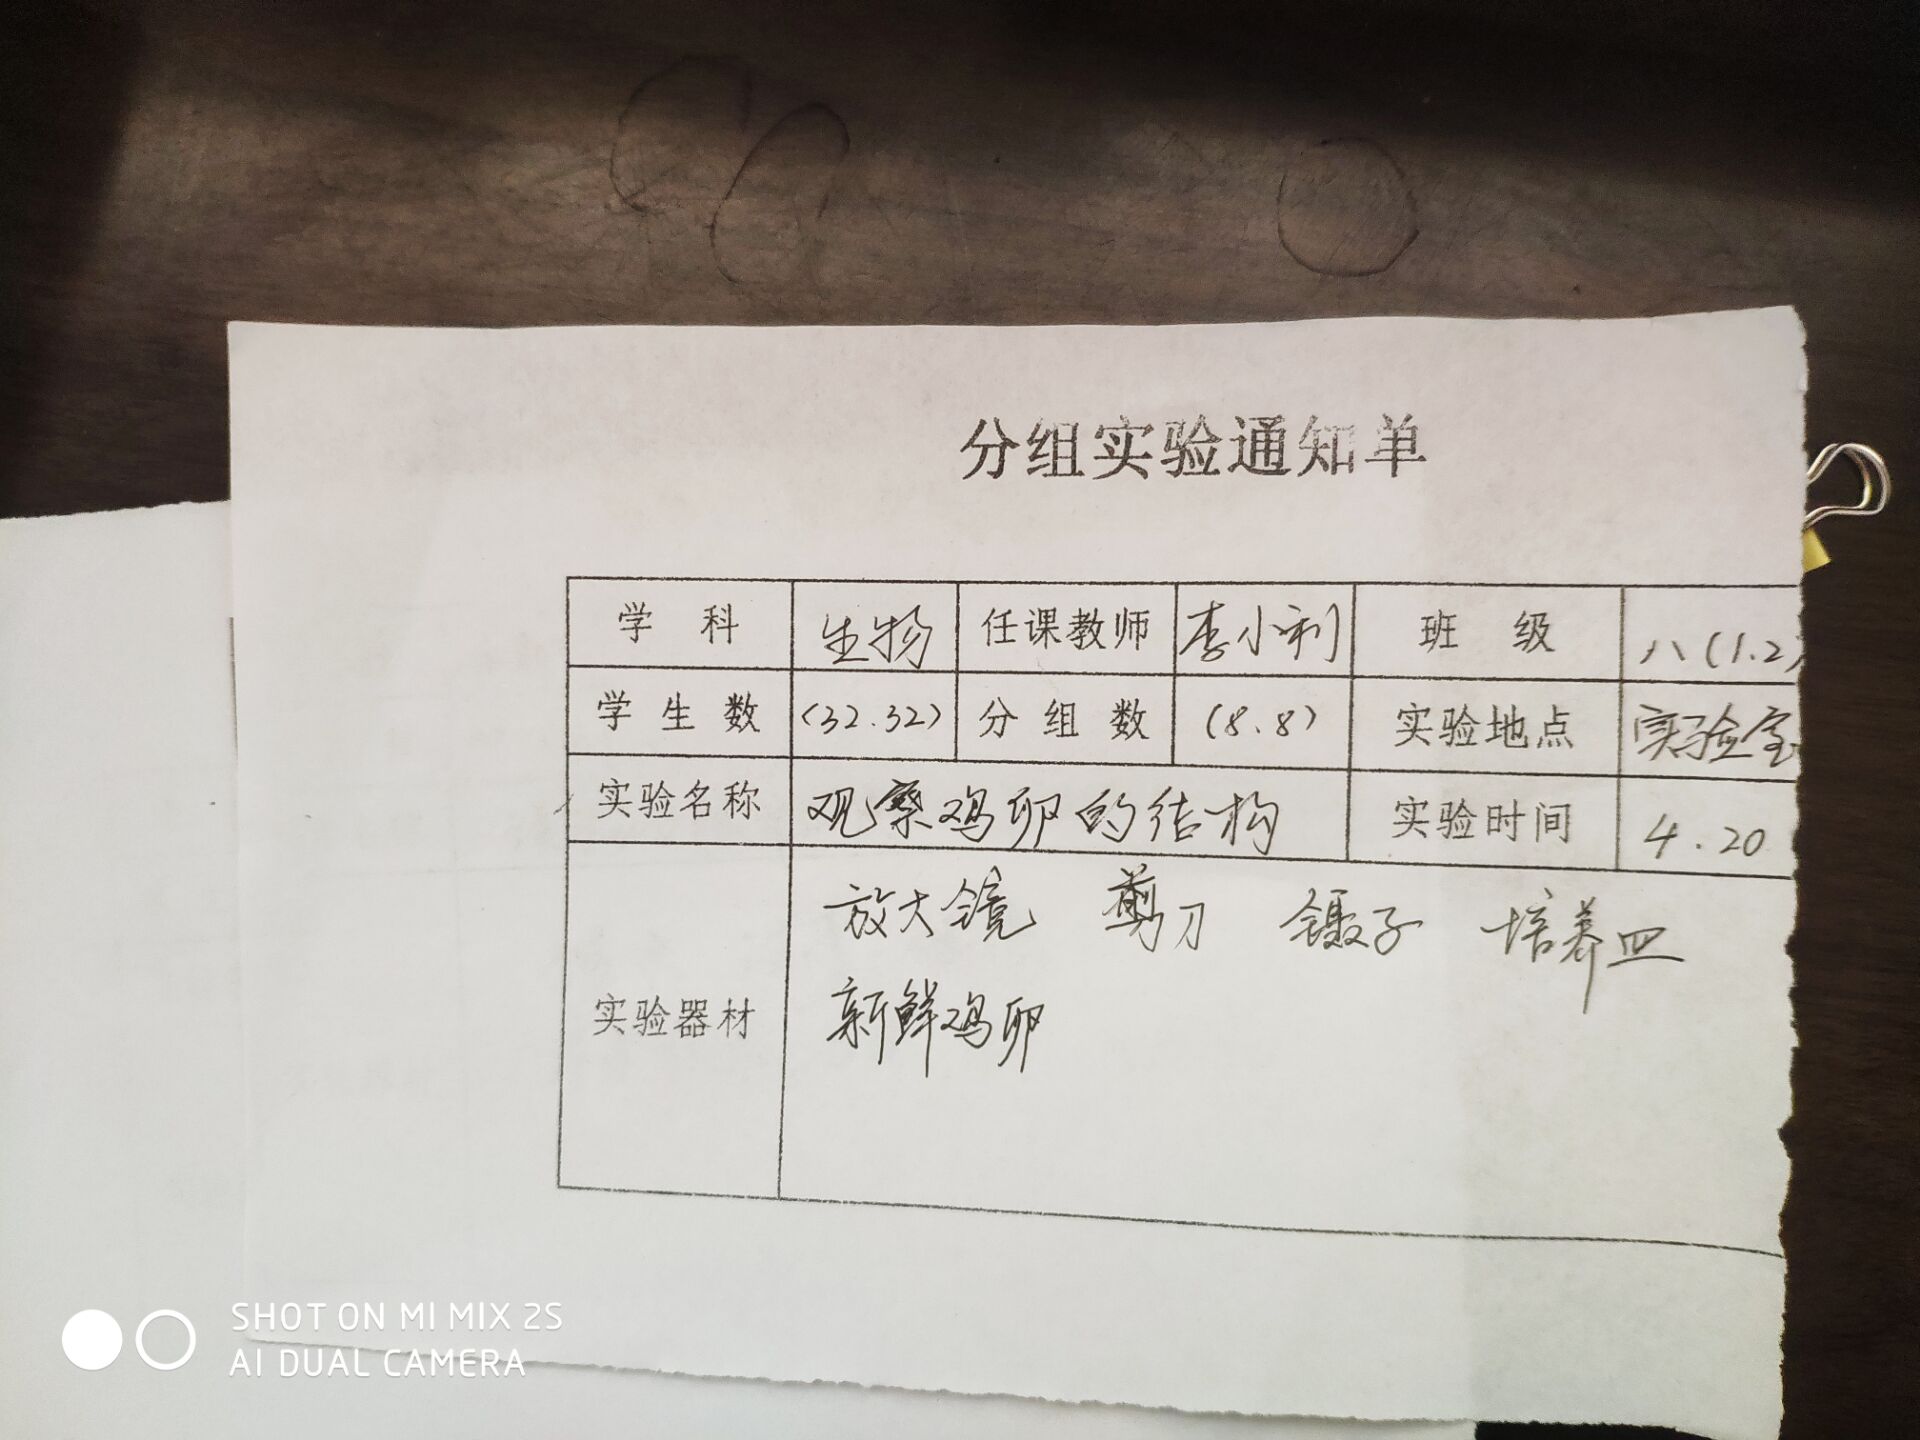 分组实验通知单
学 科 生物 任课教师 李小利 班 级 八(1.2)
学 生 数 (32.32) 分 组 数 (8.8) 实验地点 实验室
实验名称 观察鸡卵的结构 实验时间 4.20
实验器材 放大镜 剪刀 镊子 培养皿
新鲜鸡卵
SHOT ON MI MIX 2S
AI DUAL CAMERA